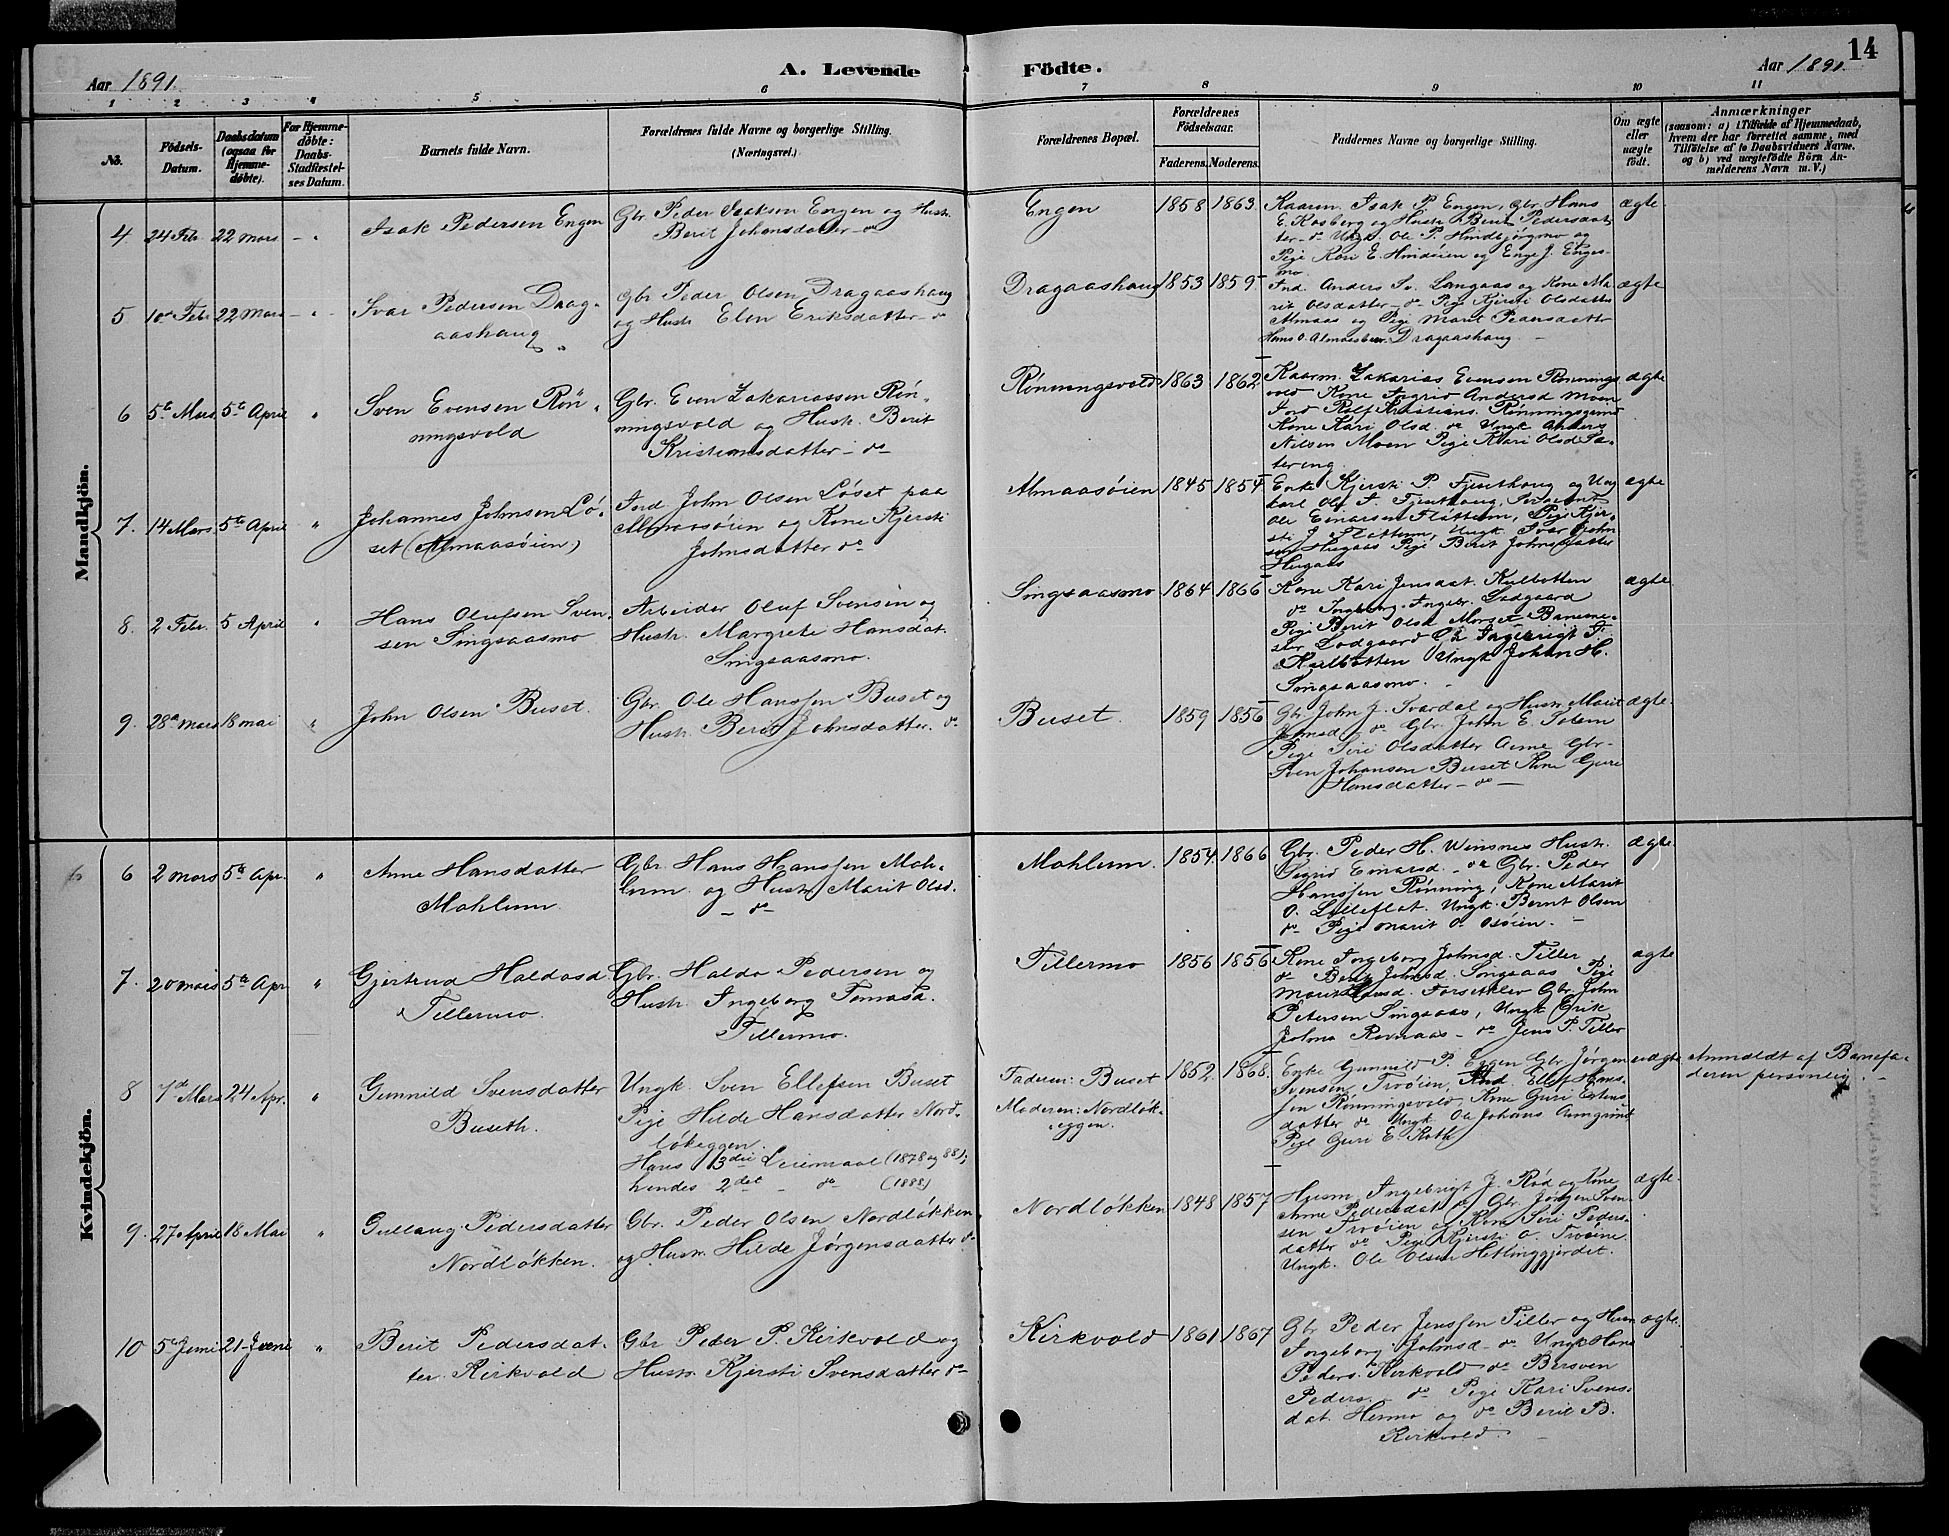 14
Aar 1891.
A. Levende Födte.
Aar 1891.
1 2 3 4 5 6 7 8 9 10 11
No.
Födsels-
Datum.
Daabsdatum
(ogsaa for
Hjemme-
døbte).
For Hjemme-
døbte:
Daabs-
Stadfæstel-
ses Datum.
Barnets fulde Navn.
Forældrenes fulde Navne og borgerlige Stilling.
(Næringsvei.)
Forældrenes Bopæl.
Forældrenes
Födselsaar.
Faderens. Moderens.
Faddernes Navne og borgerlige Stilling.
Om ægte
eller
uægte
født.
Anmærkninger
(saasom: a) i Tilfælde af Hjemmedaab,
hvem der har forrettet samme, med
Tilföielse af to Daabsvidners Navne.
og b) ved uægtefödte Börn An-
melderens Navn m. V.)
Mandkjön.
4 24 Feb. 22 Mars
Isak Pedersen Engen
Gbr. Peder Isaksen Engen og Hustr.
Berit Johansdatter do
Engen 1858 1863
Kaarm. Isak P. Engen, Gbr. Hans
E. Kosberg og Hustr. Berit Pedersdat-
ter do Ungk. Ole P. Hindbjørgmo og
Pige Kari E. Hindøien og Enge J. Enges-
mo
ægte
5 10de Febr 22 Mars
Ivar Pedersen Drag-
aashaug
Gbr Peder Olsen Dragaashaug
og Hustr. Elen Eriksdatter do
Dragaashaug 1853 1859
Ind. Anders Sv. Langaas og Kone Ma-
rit Olsdatter do Pige Kjersti Olsdatter
Almaas og Pige Marit Pedersdatter
Hans O. Almaasbær. Dragaashaug
ægte
6 5te Mars 5te April
Sven Evensen Røn-
ningsvold
Gbr. Even Zakariassen Røn-
ningsvold og Hustr. Berit
Kristiansdatter do
Rønningsvold 1863 1862
Kaarm. Zakarias Evensen Rønnings
vold Kone Ingrid Andersd Moen
Ind Rolf Kristians. Rønningsgrind
Kone Kari Olsd. do Ungk Anders
Nilsen Moen Pige Kari Olsd Sæ-
tereng
ægte
7. 14 Mars. 5te April
Johannes Johnsen Lø-
set (Almaasøien)
Ind John Olsen Løset paa
Almaasøien og Kone Kjersti
Johnsdatter do
Almaasøien 1845 1854
Enke Kjersti P. Fjesethaug og Ung
karl Ole T. Fjesethaug,
Ole Einarsen Flattum, Pige Kjer-
sti J Flattum, Ungk. Ivar John-
sen Hugaas Pige Berit Johnsdatter
Hugaas
ægte
8. 2 Febr. 5 April
Hans Olufsen Sven-
sen Singsaasmo
Arbeider Oluf Svensen og
Hustr. Margrete Hansdat.
Singsaasmo.
Singsaasmo 1864 1866
Kone Kari Jensdat. Kulbotten
do Ingeborg Ingebr. Lodgaard
Pige Berit Olsd Morset Baneme-
ster Lodgaard Gbr Ingebrigt T.
Kulbotten Ungk Johan H.
Singsaasmo.
ægte
9. 28de Mars 18 mai
John Olsen Buset.
Gbr. Ole Hanssen Buset og
Hustr. Berit Johnsdatter. do
Buset. 1859 1856
Gbr John J. Svardal og Hustr. Marit
Johnsd. do Gbr. John E. Solem
Pige Siri Olsdatter Aune Gbr.
Sven Johansen Buset Kone Guri
Hansdatter do
ægte.
Kvindekjön.
6 2 mars 5te Apr.
Anne Hansdatter
Mohlum
Gbr. Hans Hanssen Moh-
lum og Hustr. Marit Olsd.
do
Mohlum. 1854 1866
Gbr. Peder H. Winsnes Hustr.
Sigrid Einarsd. do Gbr. Peder
Hanssen Rønning, Kone Marit
O. Lilleflat. Ungk. Bernt Olsen
do Pige Marit O. Osøien.
ægte
7. 20 mars 5te Apr
Gjertrud Haldosd.
Tillermo.
Gbr. Haldo Pedersen og
Hustr. Ingeborg Tomasd.
Tillermo.
Tillermo 1856 1856
Kone Ingeborg Johnsd. Tiller
do Berit Johnsd. Singsaas Pige
Marit Forsetkler Gbr. John
Petersen Singsaas, Ungk Erik
Johns Rovnaas do Jens P. Tiller
ægte
8 7de Mars 24 Apr.
Gunnild Svensdatter
Buseth.
Ungk. Sven Ellefsen Buset
Pige Hilde Hansdatter Nord-
løkeggen.
Hans 3die Leiermaal (1878 og 88);
hendes 2det do (1888)
Faderen: Buset
Moderen: Nordløk-
eggen.
1852. 1868.
Enke Gunnild P. Engen Gbr. Jørgen
Svensen Troøien, Ind. Ellef Hans-
sen Rønningsvold, Kone Guri Estens-
datter do Ungk Ole Johans Aungrind
Pige Guri E. Kotte
uægte
Anmeldt af Barnefa-
deren personlig.
9. 27 April 18 Mai
Gullaug Pedersdatter
Nordløkken.
Gbr. Peder Olsen Nordløkken
og Hustr. Hilde Jørgensdatter do
Nordløkken 1848 1857
Husm. Ingebrigt J. Rød og Kone
Anne Pedersdat do Gbr Jørgen Sven-
sen Troøien og Kone Siri Peders-
datter do Pige Kjersti O. Troøine
Ungk. Ole Olsen Hetlinggjerdet.
ægte.
10 5te Juni 21 Juni
Berit Pedersdat-
ter Kirkvold
Gbr Peder P. Kirkvold og
Hustr. Kjersti Svensdatter do
Kirkvold 1861 1867
Gbr Peder Jenssen Tiller og Hustr
Ingeborg Johnsd do Ungk Hans
Peders. Kirkvold do Bersven
Peders. do Pige Kari Svens-
dat. Hermo og do Berit B.
Kirkvold.
ægte.